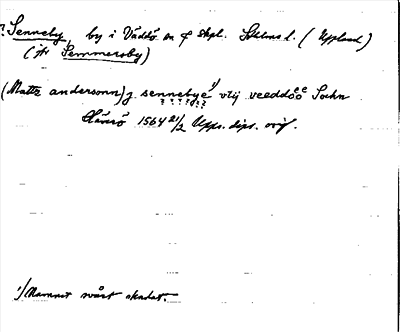 ? Senneby by i Väddö sn o skpl. Sthlms l. (Uppland)
(jfr Semmersby)
(Matts andersonn) j sennebye 1/ vtij veeddöö Sokn
1564 21/2 Upps. dipl. orig.
1/ Namnet svårt skadat.